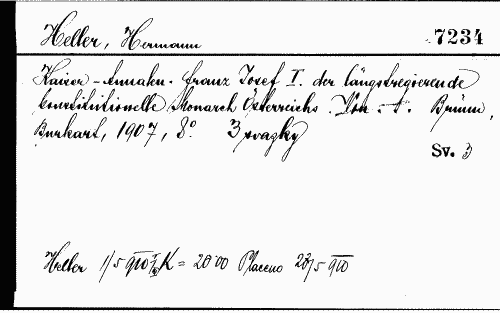 Heller, Hermann
7234
Kaiser-Annalen. Franz Josef I. der längstregierende
konstitutionelle Monarch Österreichs. Von - " -. Brünn,
Burkart, 1907, 8°. 3 svazky
Sv. 3
Heller 1/5 910 K = 20·00 Placeno 23/5 910